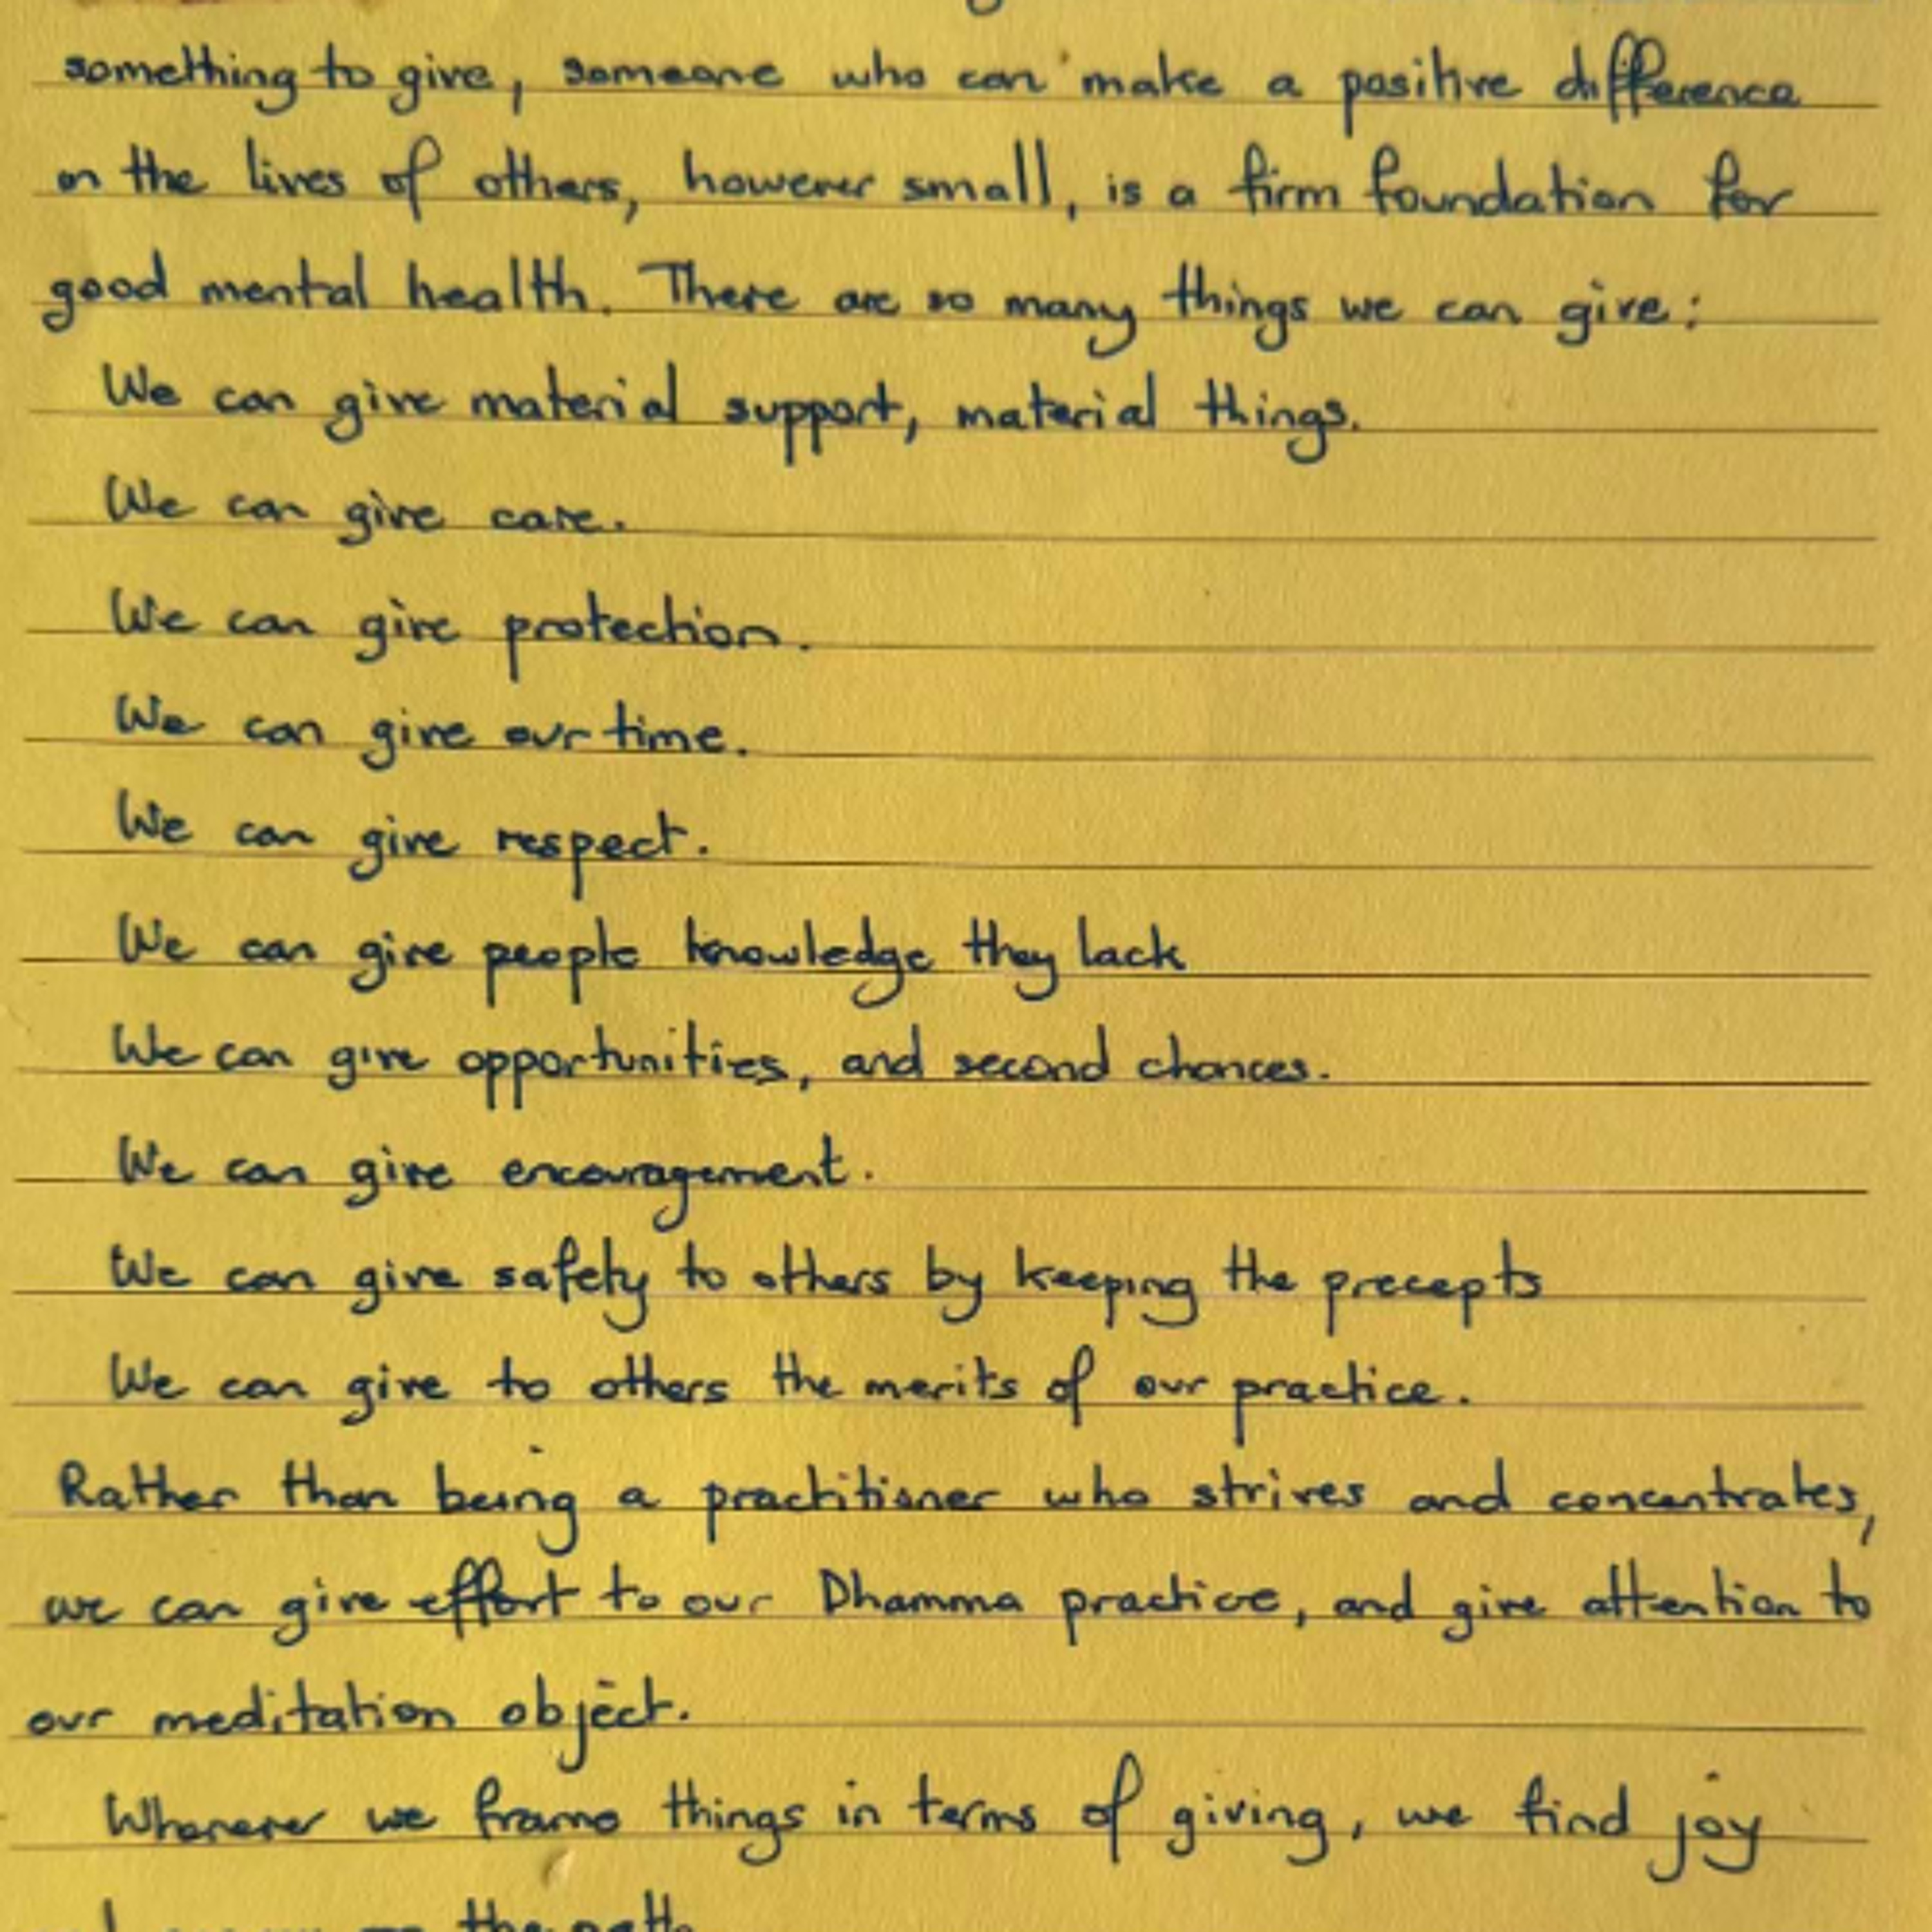 something to give, someone who can make a positive difference
in the lives of others, however small, is a firm foundation for
good mental health. There are so many things we can give:
We can give material support, material things.
We can give care.
We can give protection.
We can give our time.
We can give respect.
We can give people knowledge they lack
We can give opportunities, and second chances.
We can give encouragement.
We can give safety to others by keeping the precepts
We can give to others the merits of our practice.
Rather than being a practitioner who strives and concentrates,
we can give effort to our Dhamma practice, and give attention to
our meditation object.
Whenever we frame things in terms of giving, we find joy
the path